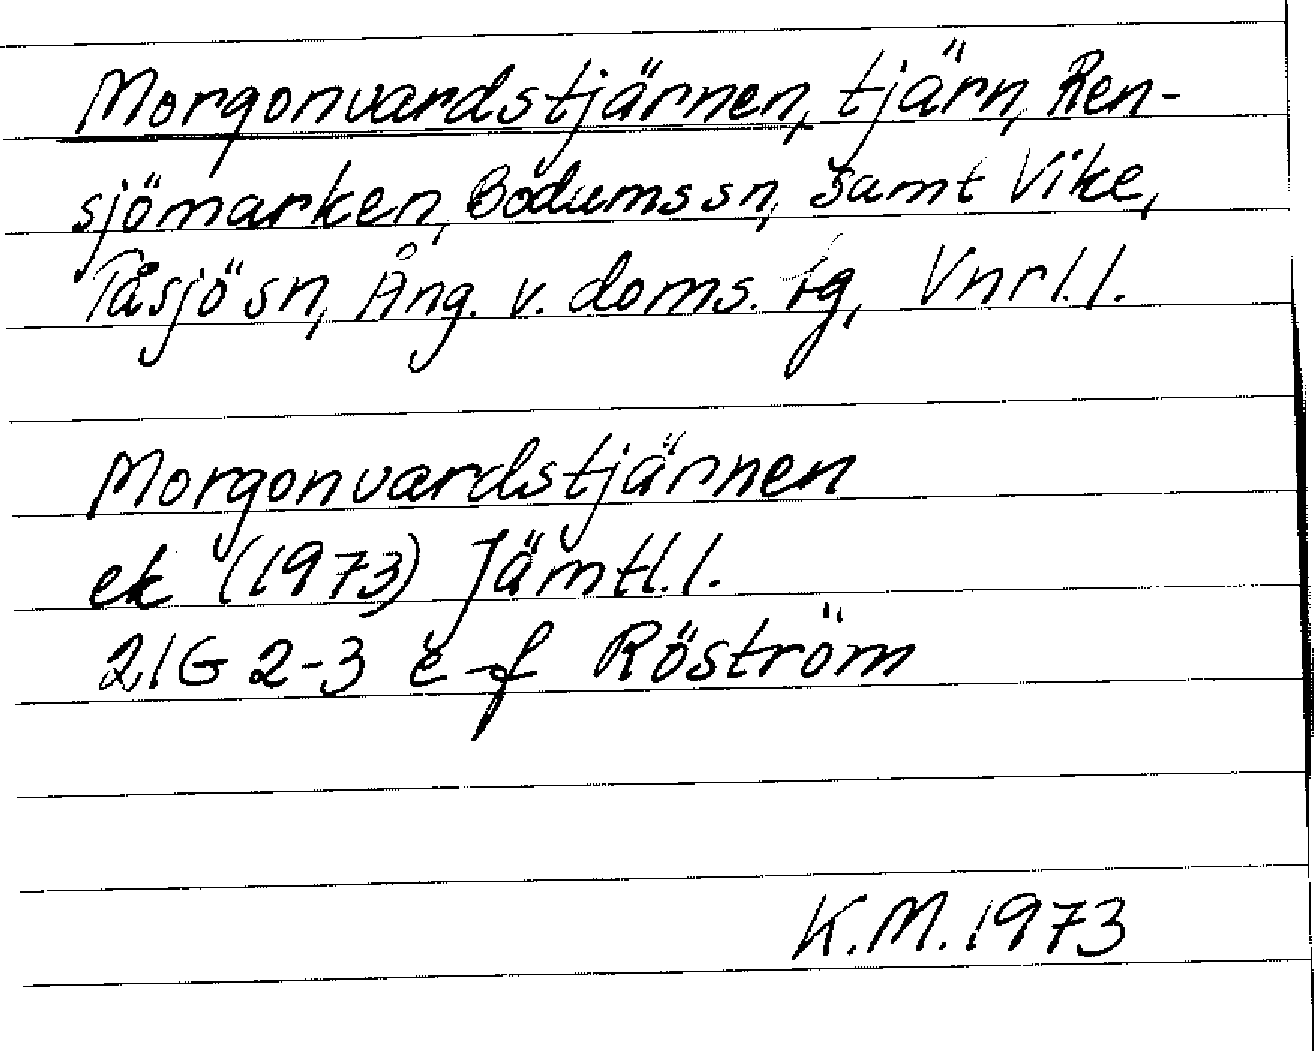 Morgonvardstjärnen, tjärn, Ren-
sjömarken, Bodums sn, samt Vike,
Tåsjö sn, Ång. v. doms. fg, Vnrl.l.
Morgonvardstjärnen
ek (1973) Jämtl.l.
21G 2-3 e-f Röström
K.M. 1973